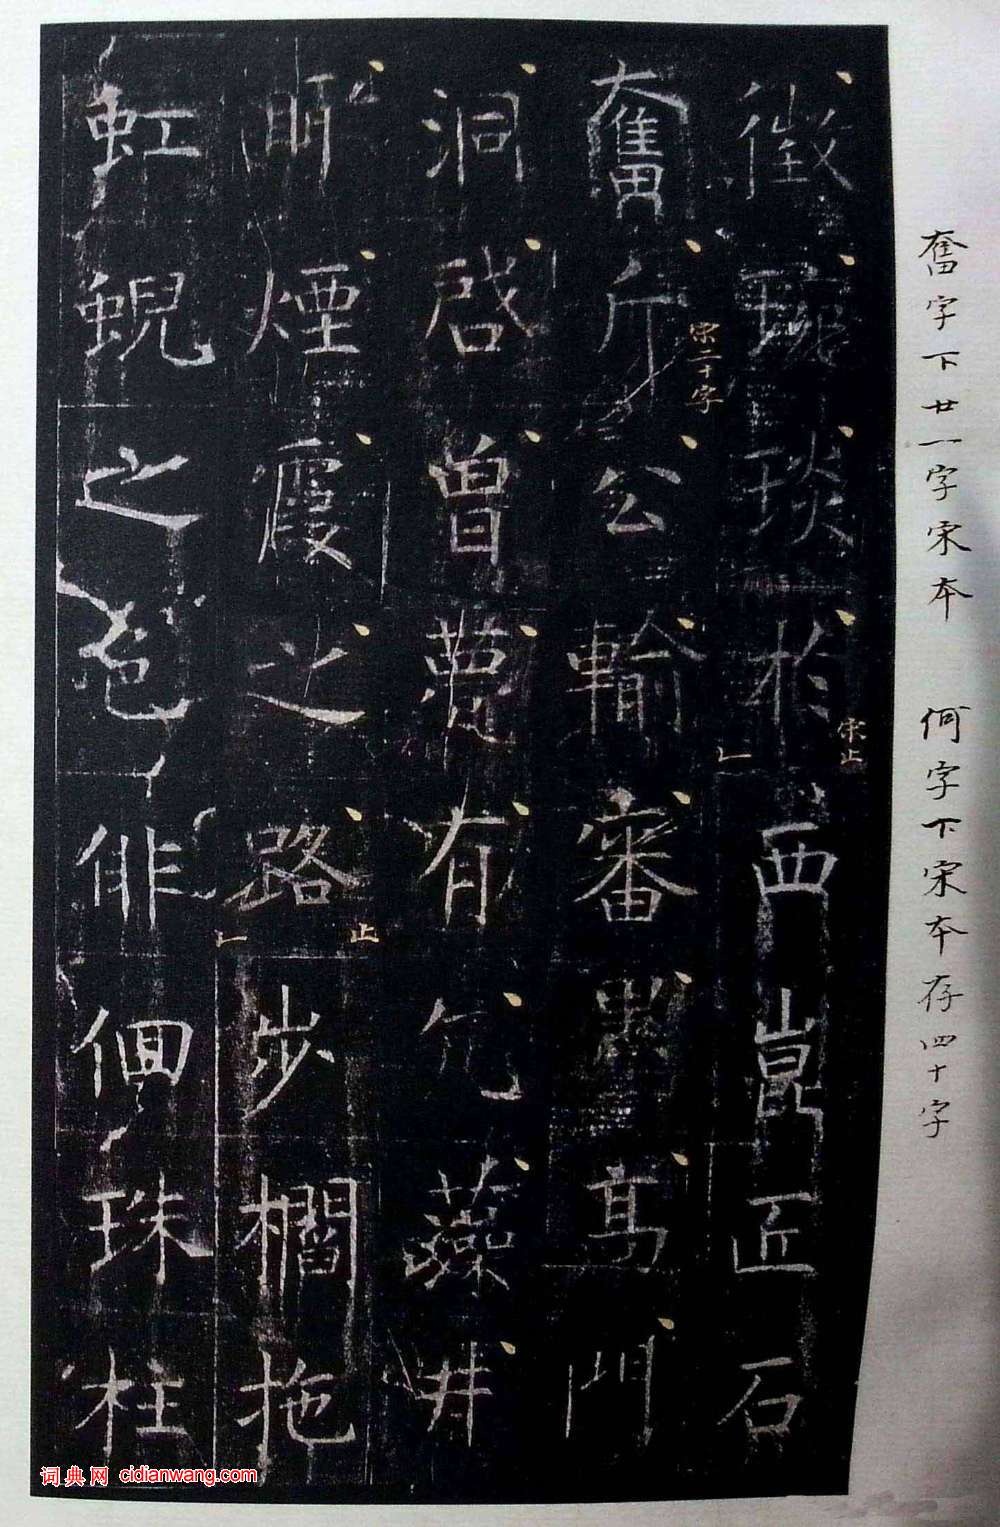 奮字下廿一字宋本 何字下宋本存四十字
徵琬琰扵西崑匠石
宋止
奮斤公輸審墨高門
宋二十字
洞啓曾甍有伉藻井
眀煙霞之路步櫩拖
止
虹蜺之色俳佪珠柱
词典网 cidianwang.com